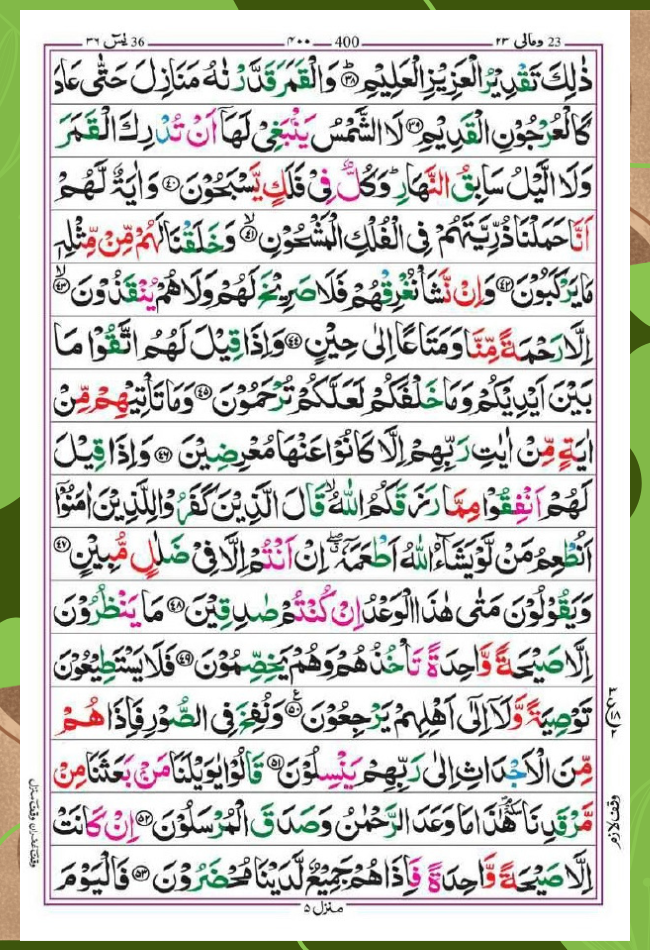 36 يٰسٓ ٣٦
٤٠٠ — 400
23 ومالی ٢٣
ذٰلِكَ تَقْدِيْرُ الْعَزِيْزِ الْعَلِيْمِ ؕ‏ ﴿٣٨﴾ وَالْقَمَرَ قَدَّرْنٰهُ مَنَازِلَ حَتّٰى عَادَ
كَالْعُرْجُوْنِ الْقَدِيْمِ ﴿٣٩﴾ لَا الشَّمْسُ يَنْۢبَغِىْ لَهَاۤ اَنْ تُدْرِكَ الْقَمَرَ
وَلَا الَّيْلُ سَابِقُ النَّهَارِ ؕ وَكُلٌّ فِىْ فَلَكٍ يَّسْبَحُوْنَ ﴿٤٠﴾ وَاٰيَةٌ لَّهُمْ
اَنَّا حَمَلْنَا ذُرِّيَّتَهُمْ فِى الْفُلْكِ الْمَشْحُوْنِ ۙ﴿٤١﴾ وَخَلَقْنَا لَهُمْ مِّنْ مِّثْلِهٖ
مَا يَرْكَبُوْنَ ﴿٤٢﴾ وَاِنْ نَّشَاْ نُغْرِقْهُمْ فَلَا صَرِيْخَ لَهُمْ وَلَا هُمْ يُنْقَذُوْنَ ۙ﴿٤٣﴾
اِلَّا رَحْمَةً مِّنَّا وَمَتَاعًا اِلٰى حِيْنٍ ﴿٤٤﴾ وَاِذَا قِيْلَ لَهُمُ اتَّقُوْا مَا
بَيْنَ اَيْدِيْكُمْ وَمَا خَلْفَكُمْ لَعَلَّكُمْ تُرْحَمُوْنَ ﴿٤٥﴾ وَمَا تَاْتِيْهِمْ مِّنْ
اٰيَةٍ مِّنْ اٰيٰتِ رَبِّهِمْ اِلَّا كَانُوْا عَنْهَا مُعْرِضِيْنَ ﴿٤٦﴾ وَاِذَا قِيْلَ
لَهُمْ اَنْفِقُوْا مِمَّا رَزَقَكُمُ اللّٰهُ ۙ قَالَ الَّذِيْنَ كَفَرُوْا لِلَّذِيْنَ اٰمَنُوْۤا
اَنُطْعِمُ مَنْ لَّوْ يَشَآءُ اللّٰهُ اَطْعَمَهٗۤ ۖ اِنْ اَنْتُمْ اِلَّا فِىْ ضَلٰلٍ مُّبِيْنٍ ﴿٤٧﴾
وَيَقُوْلُوْنَ مَتٰى هٰذَا الْوَعْدُ اِنْ كُنْتُمْ صٰدِقِيْنَ ﴿٤٨﴾ مَا يَنْظُرُوْنَ
اِلَّا صَيْحَةً وَّاحِدَةً تَاْخُذُهُمْ وَهُمْ يَخِصِّمُوْنَ ﴿٤٩﴾ فَلَا يَسْتَطِيْعُوْنَ
تَوْصِيَةً وَّلَاۤ اِلٰٓى اَهْلِهِمْ يَرْجِعُوْنَ ﴿٥٠﴾ وَنُفِخَ فِى الصُّوْرِ فَاِذَا هُمْ
مِّنَ الْاَجْدَاثِ اِلٰى رَبِّهِمْ يَنْسِلُوْنَ ﴿٥١﴾ قَالُوْا يٰوَيْلَنَا مَنْۢ بَعَثَنَا مِنْ
مَّرْقَدِنَا ۘ هٰذَا مَا وَعَدَ الرَّحْمٰنُ وَصَدَقَ الْمُرْسَلُوْنَ ﴿٥٢﴾ اِنْ كَانَتْ
اِلَّا صَيْحَةً وَّاحِدَةً فَاِذَا هُمْ جَمِيْعٌ لَّدَيْنَا مُحْضَرُوْنَ ﴿٥٣﴾ فَالْيَوْمَ
منزل ٥
وقف لازم
وقف غفران وقف منزل